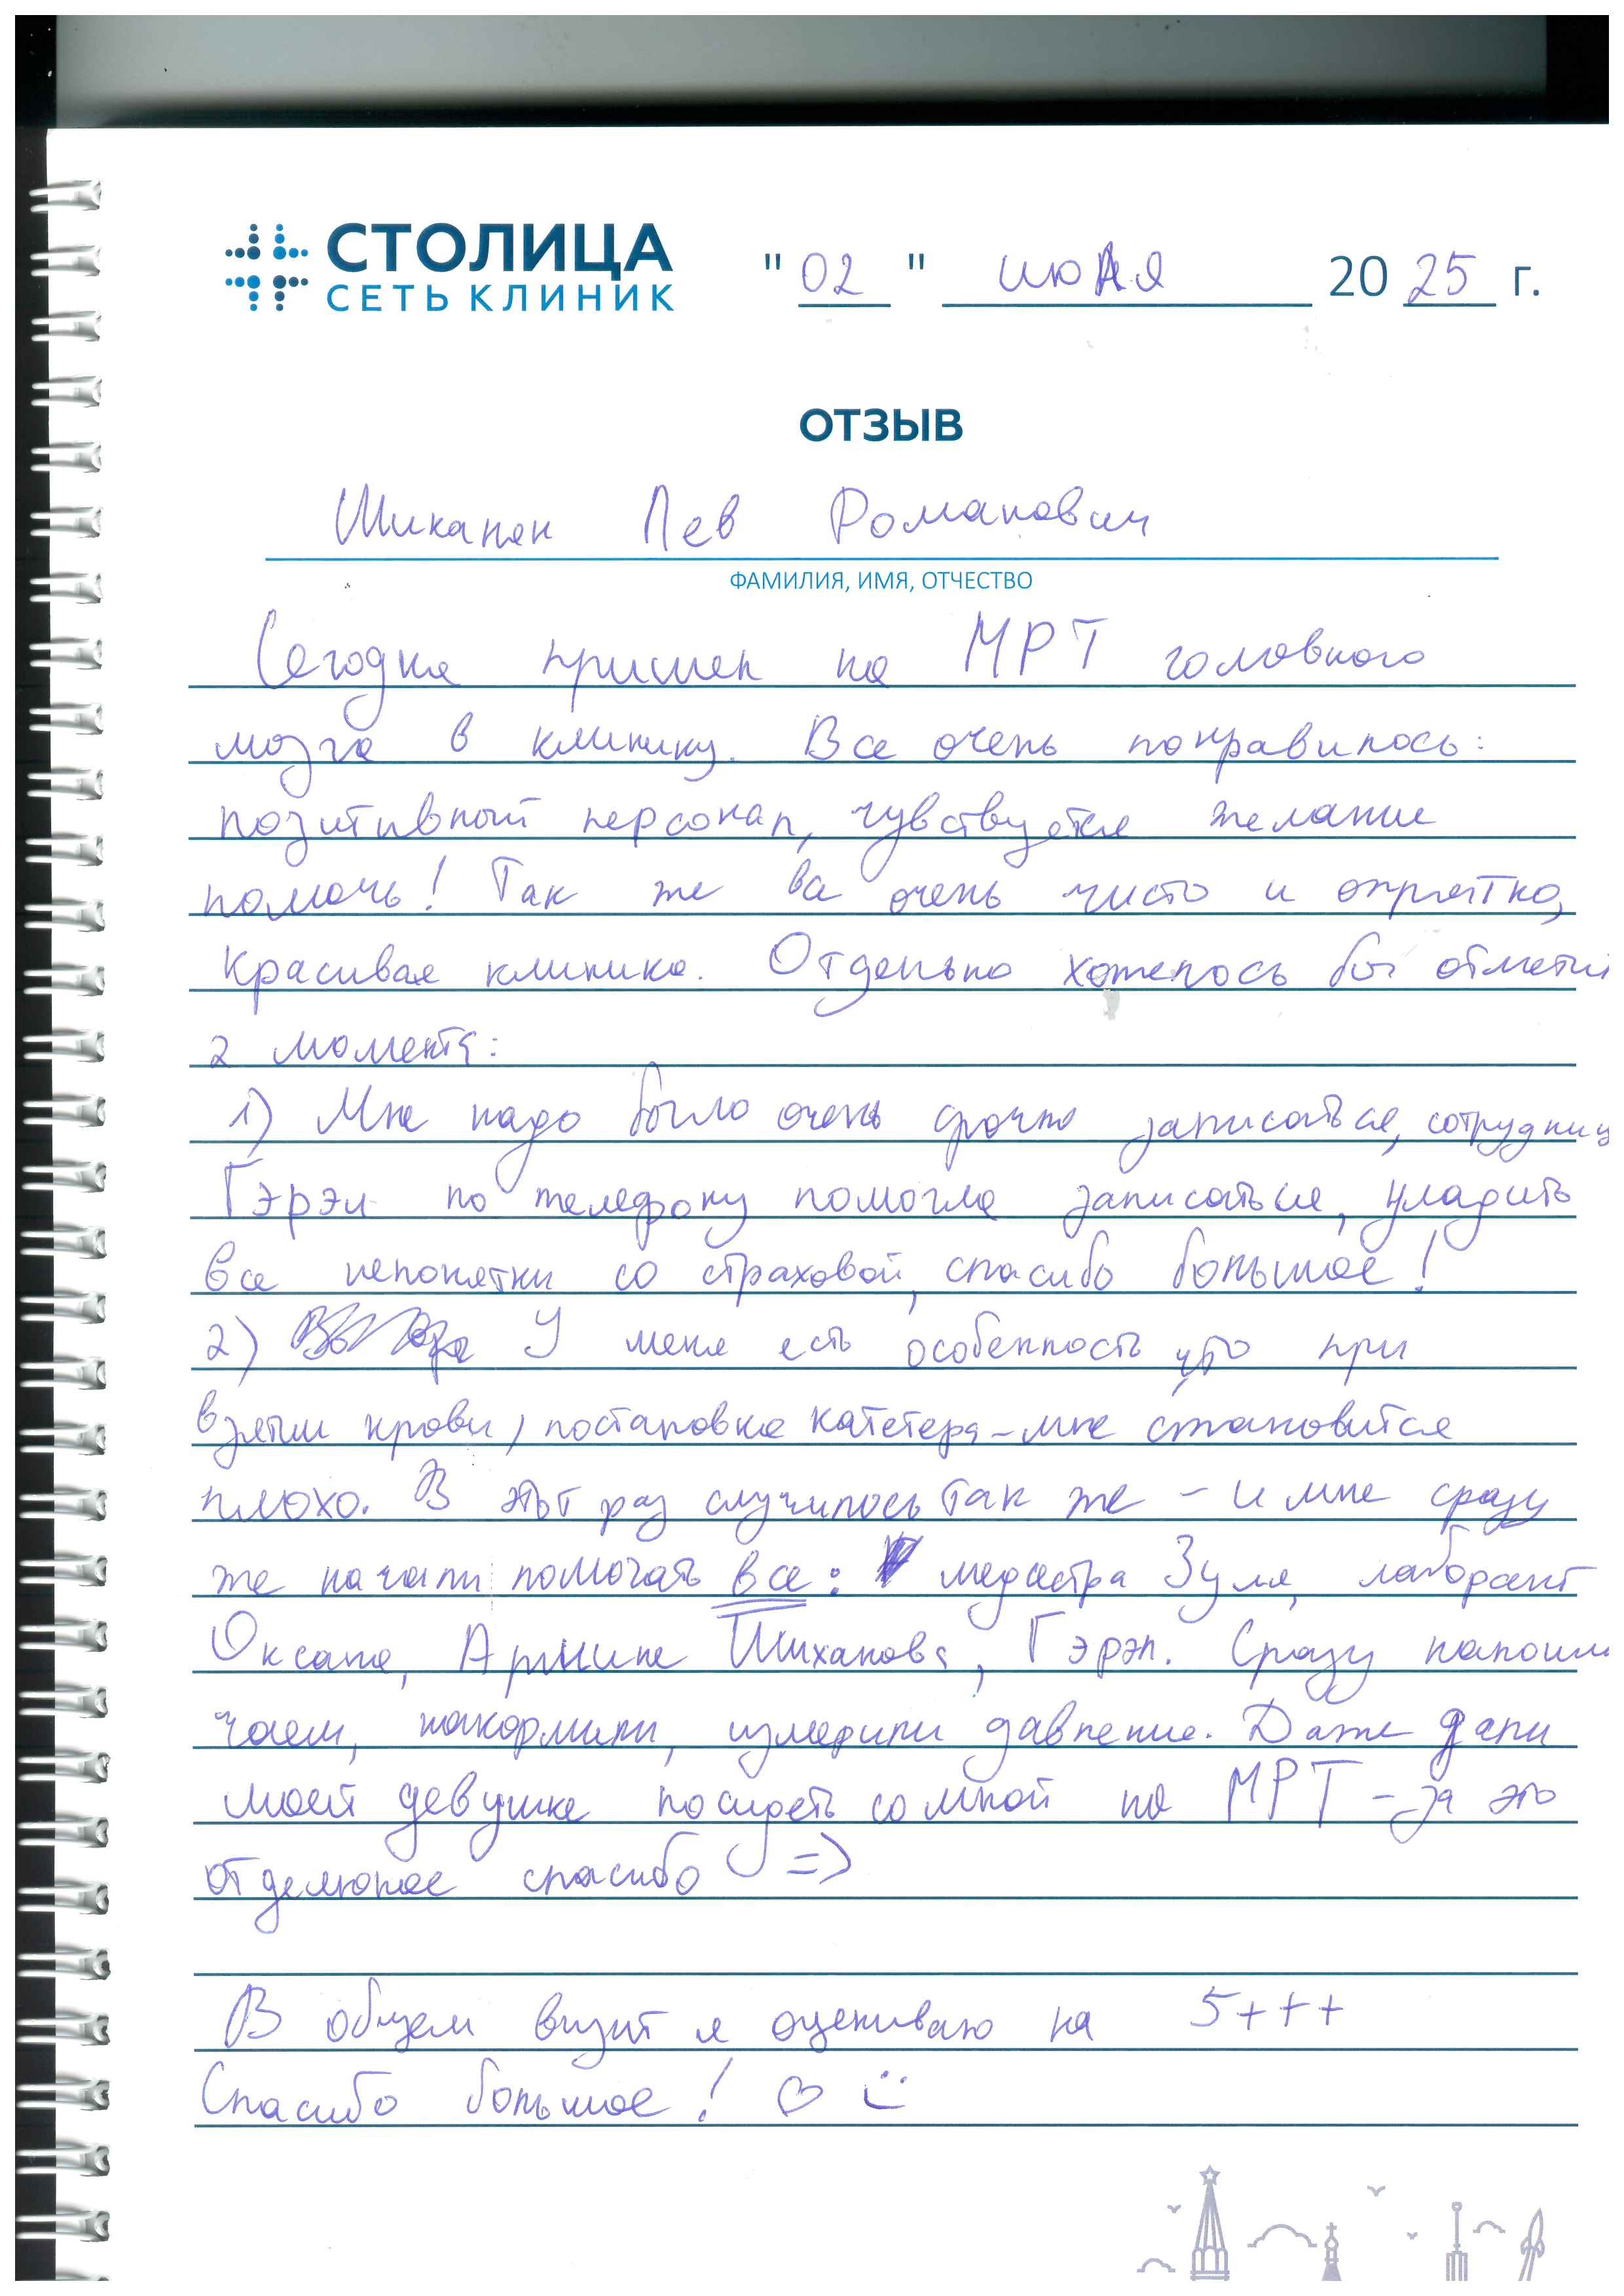 СТОЛИЦА
СЕТЬ КЛИНИК
"02" июля 2025 г.
ОТЗЫВ
Шиканян Лев Романович
ФАМИЛИЯ, ИМЯ, ОТЧЕСТВО
Сегодня пришел на МРТ головного
мозга в клинику. Все очень понравилось:
позитивный персонал, чувствуется желание
помочь! Так же все очень чисто и опрятно,
красивая клиника. Отдельно хотелось бы отметит
2 момента:
1) Мне надо было очень срочно записаться, сотрудниц
Гэрэл по телефону помогла записаться, уладить
все непонятки со страховой, спасибо большое!
2) У меня есть особенность что при
взятии крови, постановке катетера - мне становится
плохо. В этот раз случилось так же - и мне сразу
же начали помогать все: медсестра Зуля, лаборант
Оксана, Армине Шиханова, Гэрэл. Сразу напоили
чаем, накормили, измерили давление. Даже дали
моей девушке посидеть со мной на МРТ - за это
отдельное спасибо =)
В общем визит я оцениваю на 5+++
Спасибо большое! ♡